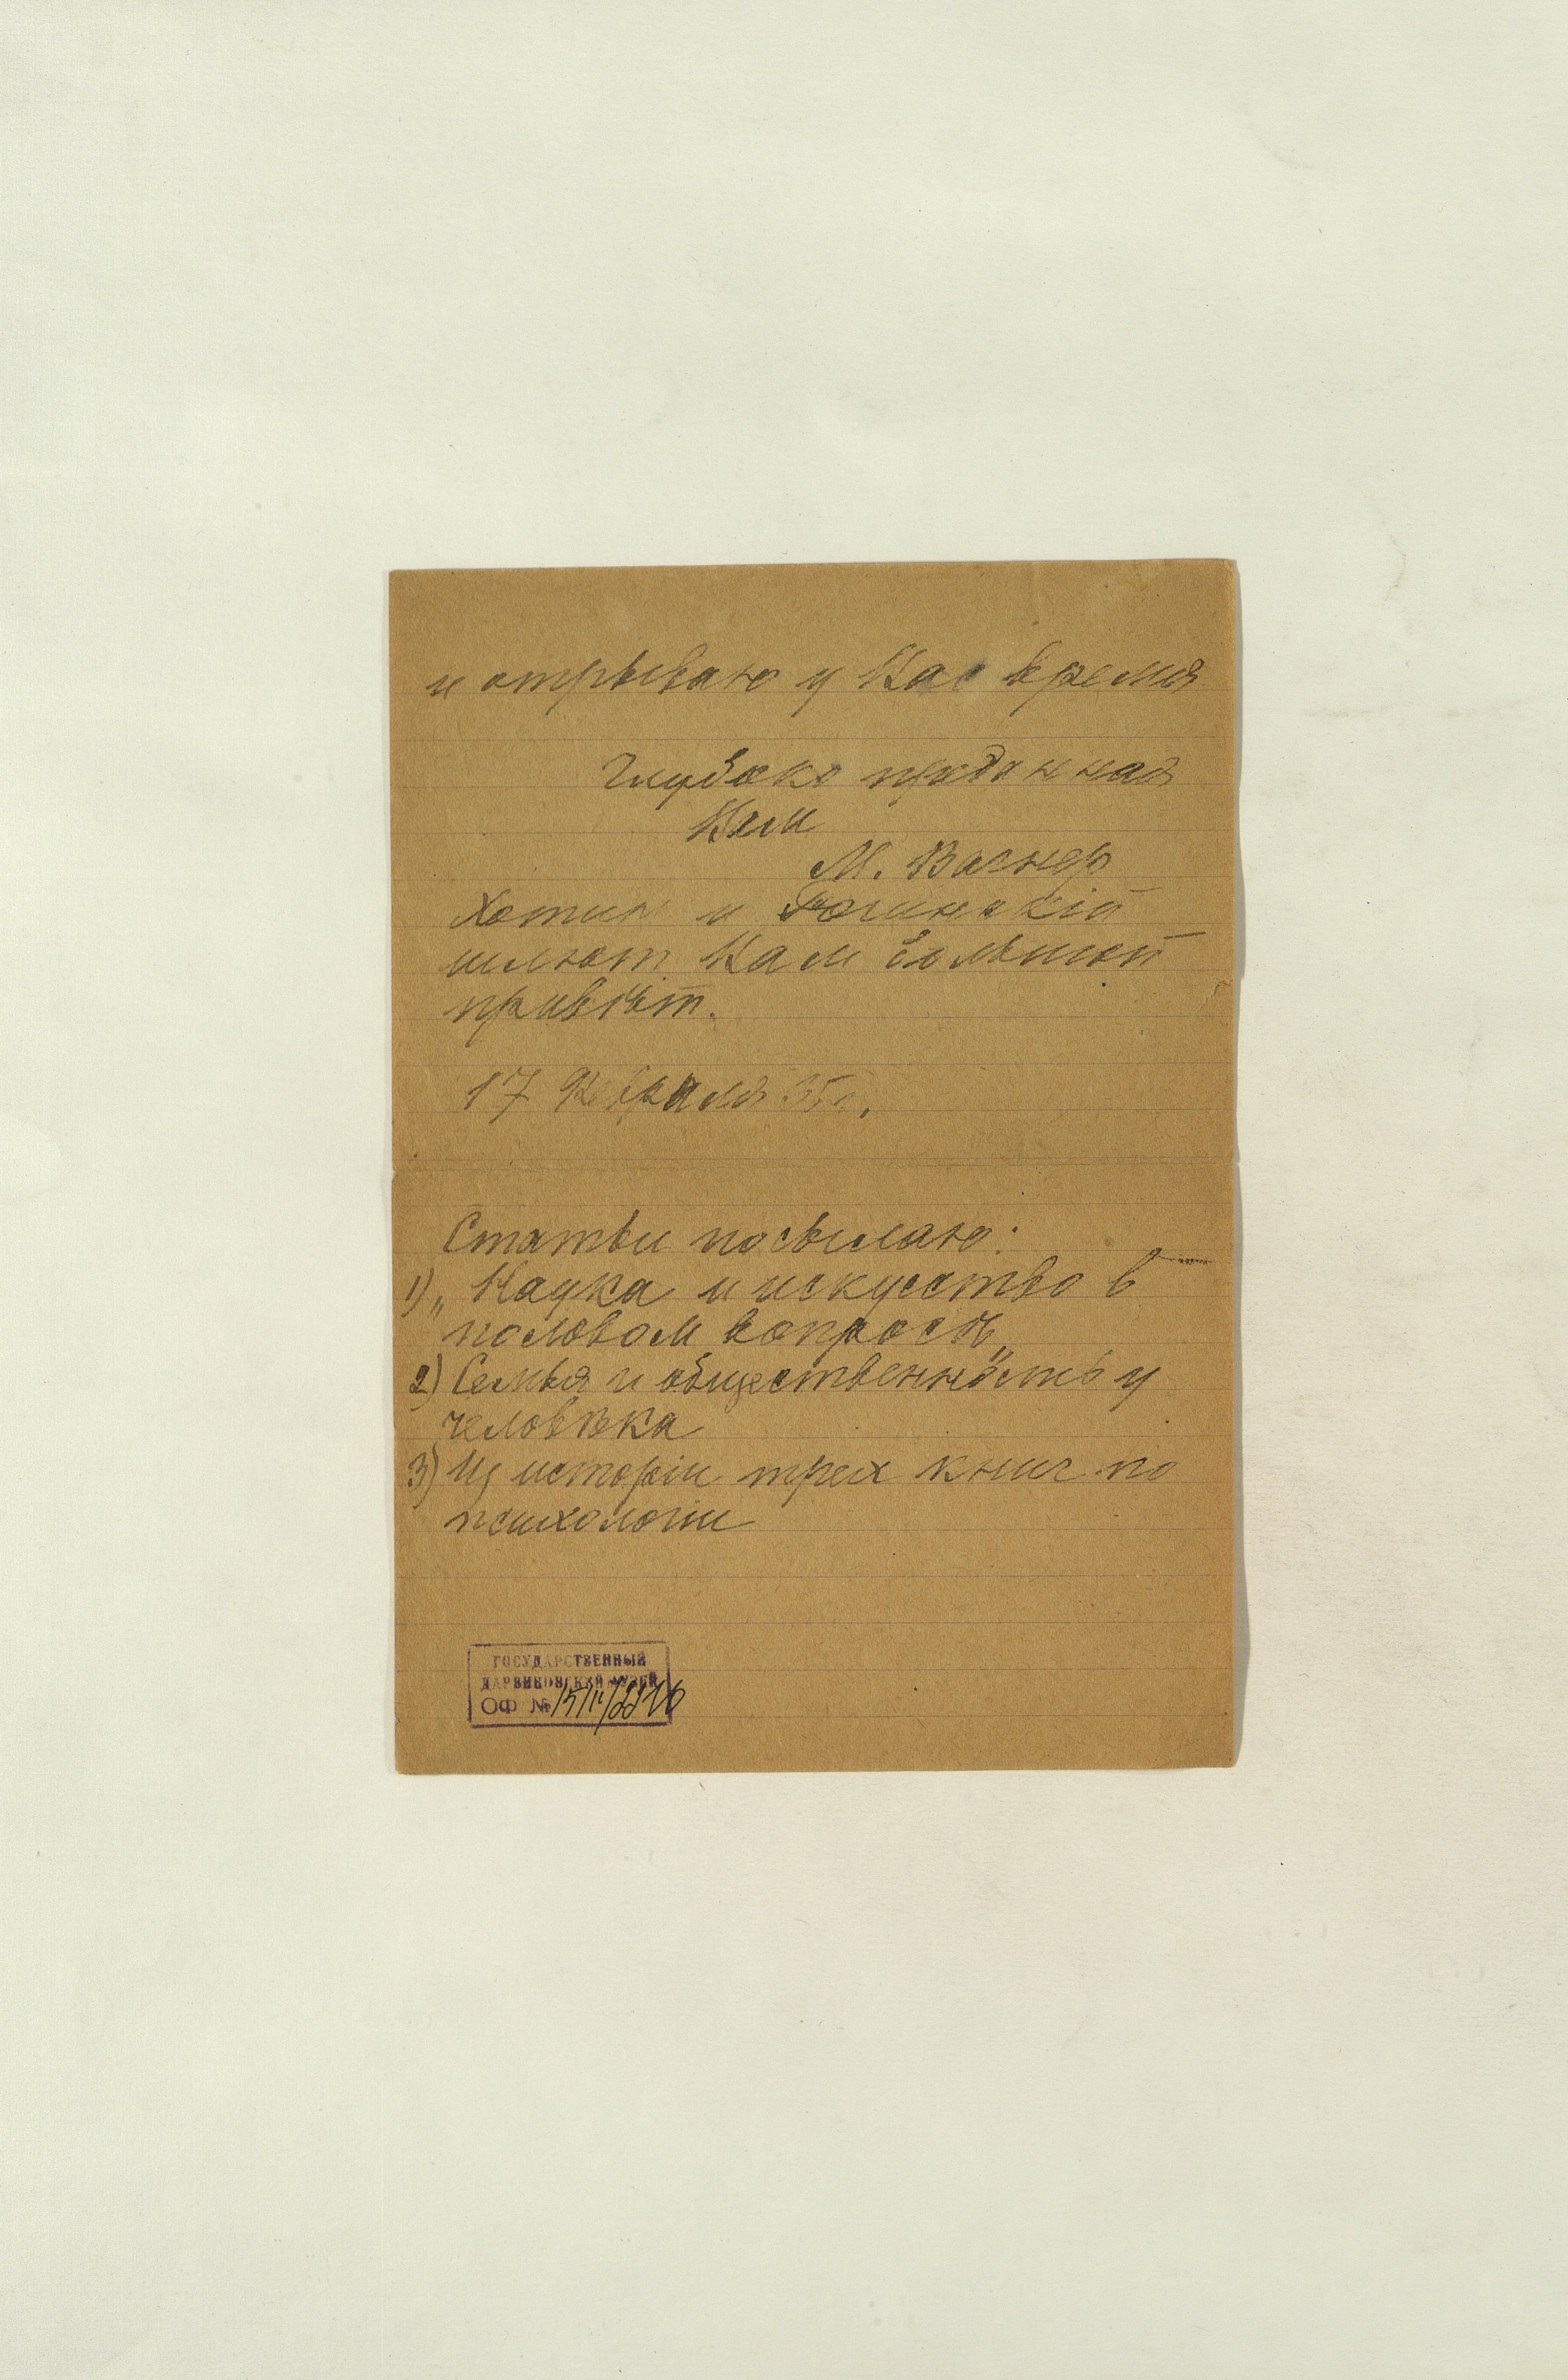 и отрываю у Вас время
Глубоко преданная
Вам
М. Вагнер
Хотин и Рогинскій
шлют Вам большой
привѣт.
17 Февраля 35 г.
Статьи посылаю:
1) „Наука и искусство в
половом вопросѣ"
2) Семья и общественность у
человѣка
3) Из исторіи трех книг по
психологіи
ГОСУДАРСТВЕННЫЙ
ДАРВИНОВСКИЙ МУЗЕЙ
ОФ №